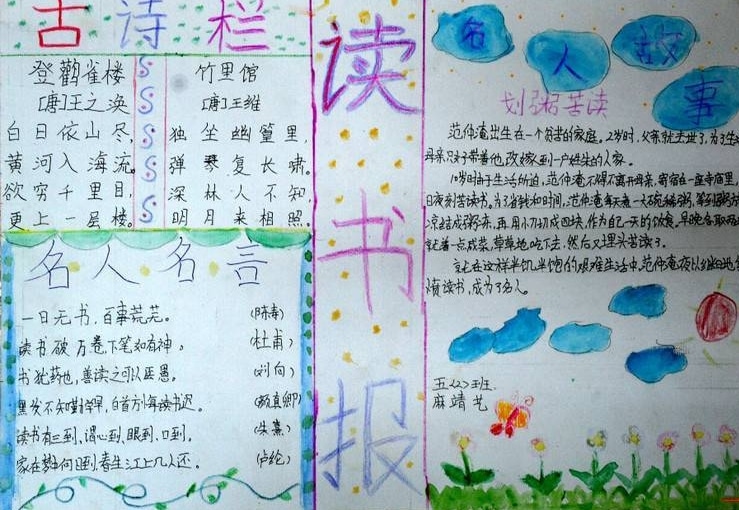 古诗栏
登鸛雀楼
[唐]王之涣
白日依山尽,
黄河入海流。
欲穷千里目,
更上一层楼。
竹里馆
[唐]王维
独坐幽篁里,
弹琴复长啸。
深林人不知,
明月来相照。
名人名言
一日无书,百事荒芜。(陈寿)
读书破万卷,下笔如有神。(杜甫)
书犹药也,善读之可以医愚。(刘向)
黑发不知勤学早,白首方悔读书迟。(颜真卿)
读书有三到,谓心到、眼到、口到。(朱熹)
家在梦中何日到,春生江上几人还。(卢纶)
读书报
名人故事
划粥苦读
范仲淹出生在一个贫苦的家庭。2岁时,父亲就去世了,为了生
母亲只好带着他,改嫁到一户姓朱的人家。
10岁时由于生活所迫,范仲淹不得不离开母亲,寄宿在一座寺庙里,
日夜刻苦读书。为了省钱和时间,范仲淹每天煮一大碗稀粥,等到粥
凉结成粥冻,再用小刀切成四块,作为自己一天的饮食。早晚各取两
就着一点咸菜,草草地吃下去,然后又埋头苦读了。
就在这样半饥半饱的艰难生活中,范仲淹夜以继日地
愤读书,成为了名人。
五(2)班
麻靖艺